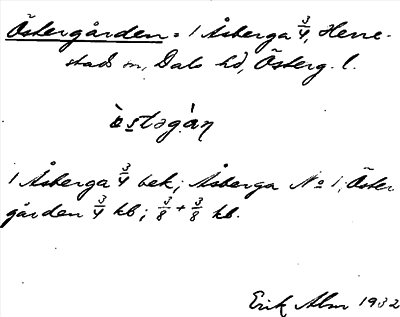 Östergården = 1 Åsberga 3/4, Herre-
stads sn, Dals hd, Österg. l.
östəgàn
1 Åsberga 3/4 bek; Åsberga No 1; Öster
gården 3/4 kb; 3/8 + 3/8 kb.
Erik Alm 1932